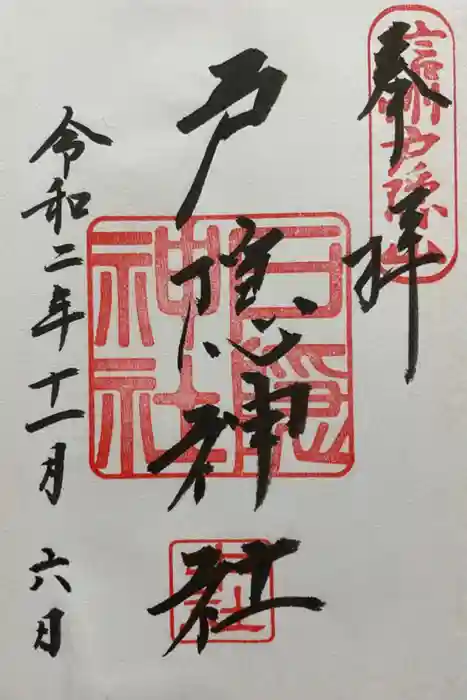 奉拝
信州戸隠山
戸隠神社
戸隠
神社
中社
令和二年十一月六日